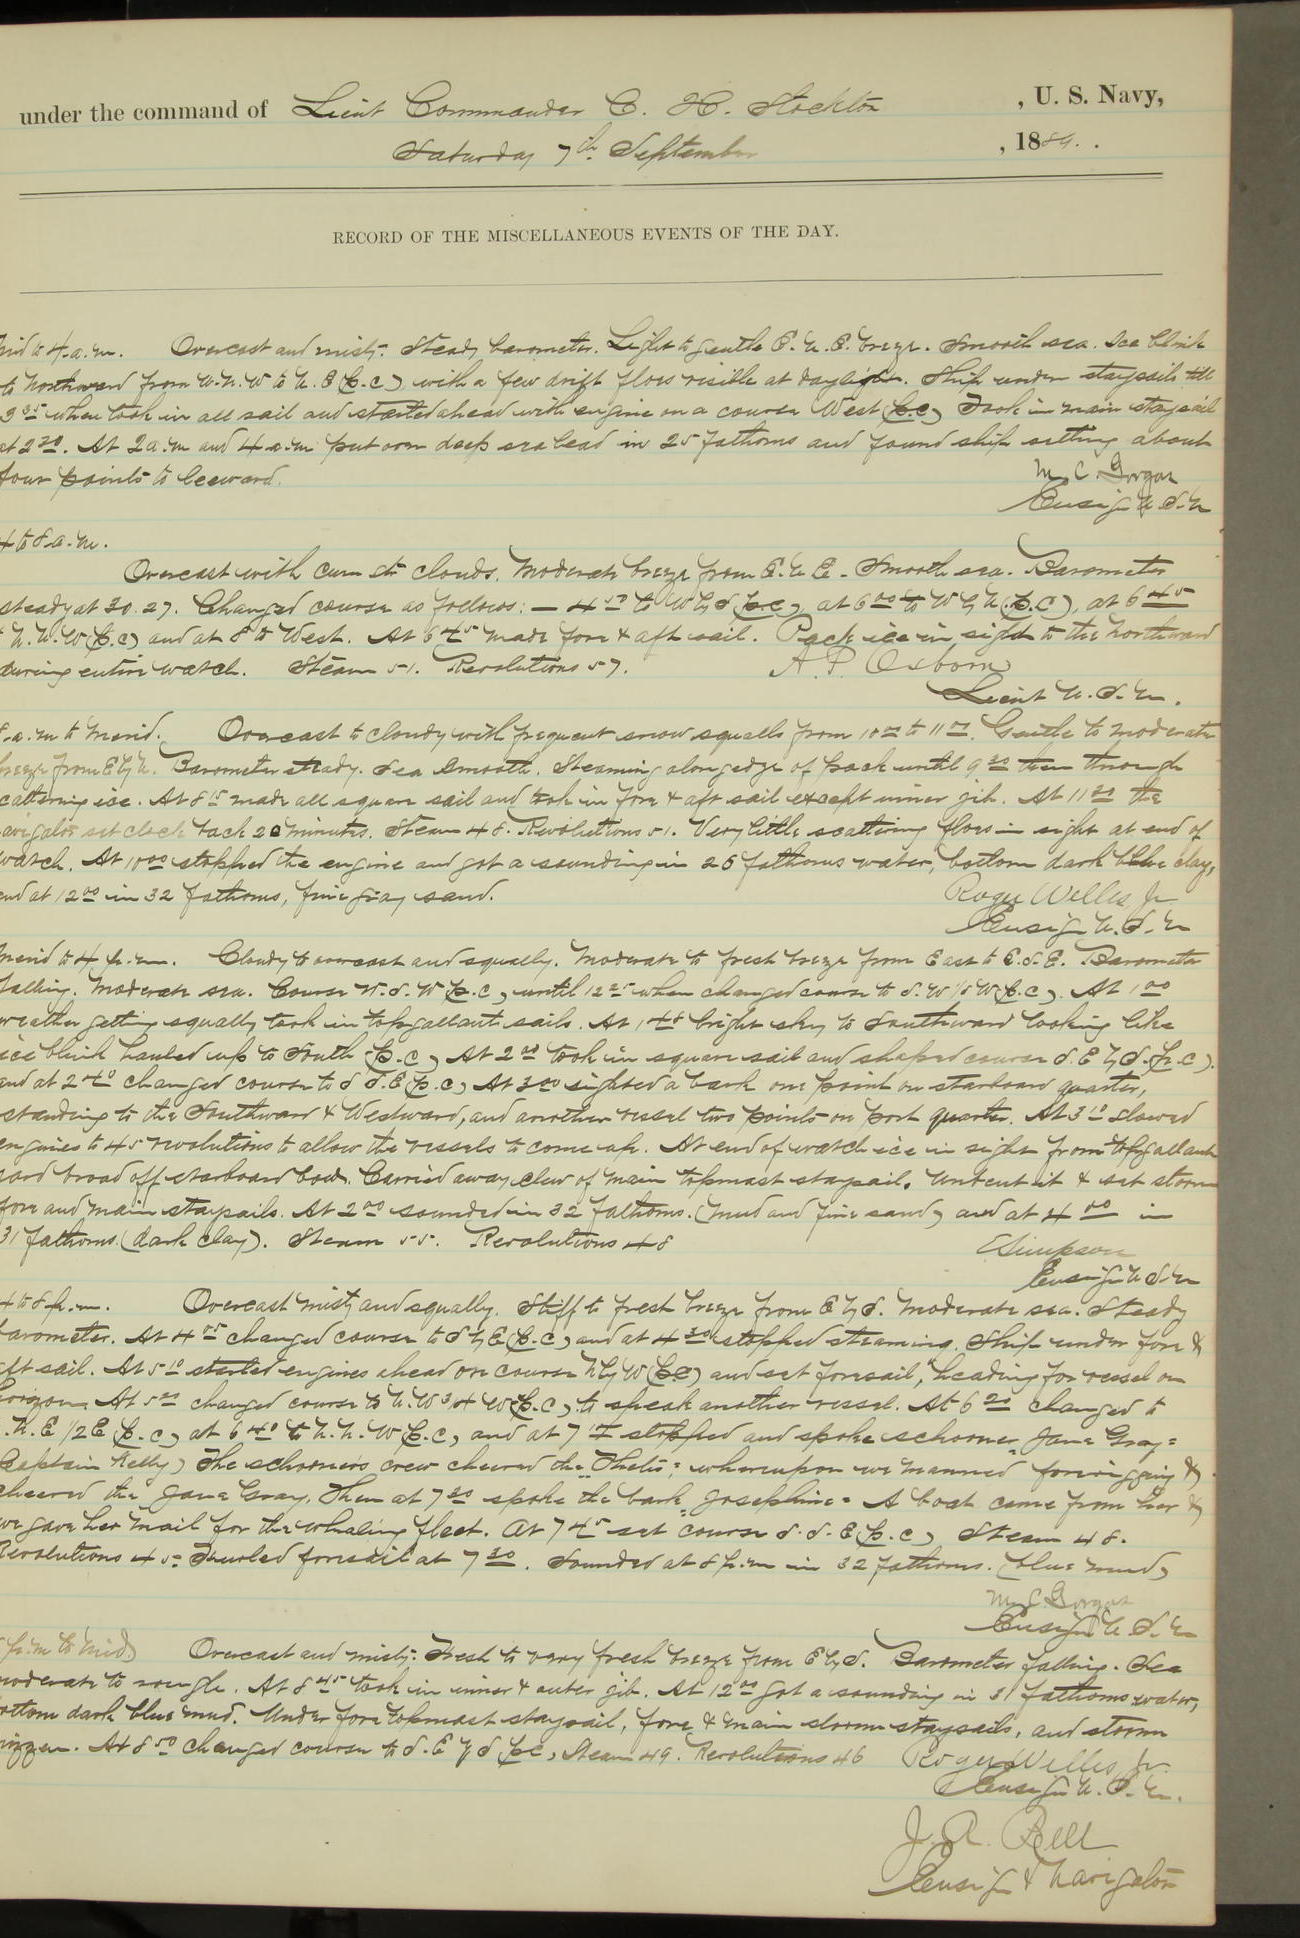 under the command of Lieut Commander C. H. Stockton , U. S. Navy,
Saturday 7th September , 1889.
RECORD OF THE MISCELLANEOUS EVENTS OF THE DAY.
Mid to 4 a.m. Overcast and misty. Steady barometer. Light to gentle E.N.E. breeze. Smooth sea. Ice blink
to Northward from W.N.W to N.E (p.c) with a few drift floes visible at daylight. Ship under staysails till
3 35 when took in all sail and started ahead with engine on a course West (p.c) Took in main staysail
at 2 30. At 2 a.m and 4 a.m put over deep sea lead in 25 fathoms and found ship setting about
four points to leeward.
M. C. Gorgas
Ensign U.S.N
4 to 8 a.m.
Overcast with cum str clouds. Moderate breeze from E.N.E. Smooth sea. Barometer
steady at 30.27. Changed course as follows: — 4 50 to W by S (p.c), at 6 00 to W by N (p.c), at 6 45
N.N.W (p.c) and at 8 to West. At 6 45 made fore & aft sail. Pack ice in sight to the Northward
during entire watch. Steam 51. Revolutions 57.
A. P. Osborn
Lieut U.S.N.
8 a.m to Merid. Overcast to cloudy with frequent snow squalls from 10 to 11. Gentle to moderate
breeze from E by N. Barometer steady. Sea smooth. Steaming along edge of pack until 9 30 then through
scattering ice. At 8 15 made all square sail and took in fore & aft sail except inner jib. At 11 30 the
navigator set clock back 20 minutes. Steam 48. Revolutions 51. Very little scattering floes in sight at end of
watch. At 10 00 stopped the engine and got a sounding in 26 fathoms water, bottom dark blue clay,
and at 12 00 in 32 fathoms, fine gray sand.
Roger Welles Jr
Ensign U.S.N
Merid to 4 p.m. Cloudy to overcast and squally. Moderate to fresh breeze from East to E.S.E. Barometer
falling. Moderate sea. Course W.S.W (p.c) until 12 25 when changed course to S.W 1/2 W (p.c). At 1 00
weather getting squally took in topgallant sails. At 1 45 bright sky to Southward looking like
ice blink hauled up to South (p.c) At 2 00 took in square sail and shaped course S.E by S. (p.c).
and at 2 40 changed course to S S.E (p.c) At 3 00 sighted a bark one point on starboard quarter,
standing to the Southward & Westward, and another vessel two points on port quarter. At 3 10 slowed
engines to 45 revolutions to allow the vessels to come up. At end of watch ice in sight from topgallant
yard broad off starboard bow. Carried away clew of main topmast staysail. Unbent it & set storm
fore and main staysails. At 2 00 sounded in 32 fathoms. (mud and fine sand) and at 4 00 in
31 fathoms. (dark clay). Steam 55. Revolutions 48
E Simpson
Ensign U.S.N
4 to 8 p.m. Overcast misty and squally. Stiff to fresh breeze from E by S. Moderate sea. Steady
barometer. At 4 05 changed course to S by E (p.c) and at 4 30 stopped steaming. Ship under fore &
aft sail. At 5 10 started engines ahead on course N by W (p.c) and set foresail, heading for vessel on
horizon. At 5 20 changed course to N.W 3/4 W (p.c) to speak another vessel. At 6 20 changed to
N.E 1/2 E (p.c) at 6 40 to N.N.W (p.c) and at 7 stopped and spoke schooner "Jane Gray"
Captain Kelly) The schooners crew cheered the "Thetis", whereupon we manned fore rigging &
cheered the Jane Gray. Then at 7 30 spoke the bark "Josephine" A boat came from her &
we gave her mail for the whaling fleet. At 7 45 set course S.S.E (p.c) Steam 48.
Revolutions 45. Furled foresail at 7 30. Sounded at 8 p.m in 32 fathoms. (blue mud)
M. C. Gorgas
Ensign U.S.N
8 p.m to Mid) Overcast and misty. Fresh to very fresh breeze from E by S. Barometer falling. Sea
moderate to rough. At 8 45 took in inner & outer jib. At 12 00 got a sounding in 31 fathoms water,
bottom dark blue mud. Under fore topmast staysail, fore & main storm staysails, and storm
mizzen. At 8 50 changed course to S.E by S (p.c, Steam 49. Revolutions 46
Roger Welles Jr.
Ensign U.S.N.
J. A. Bell
Ensign & Navigator